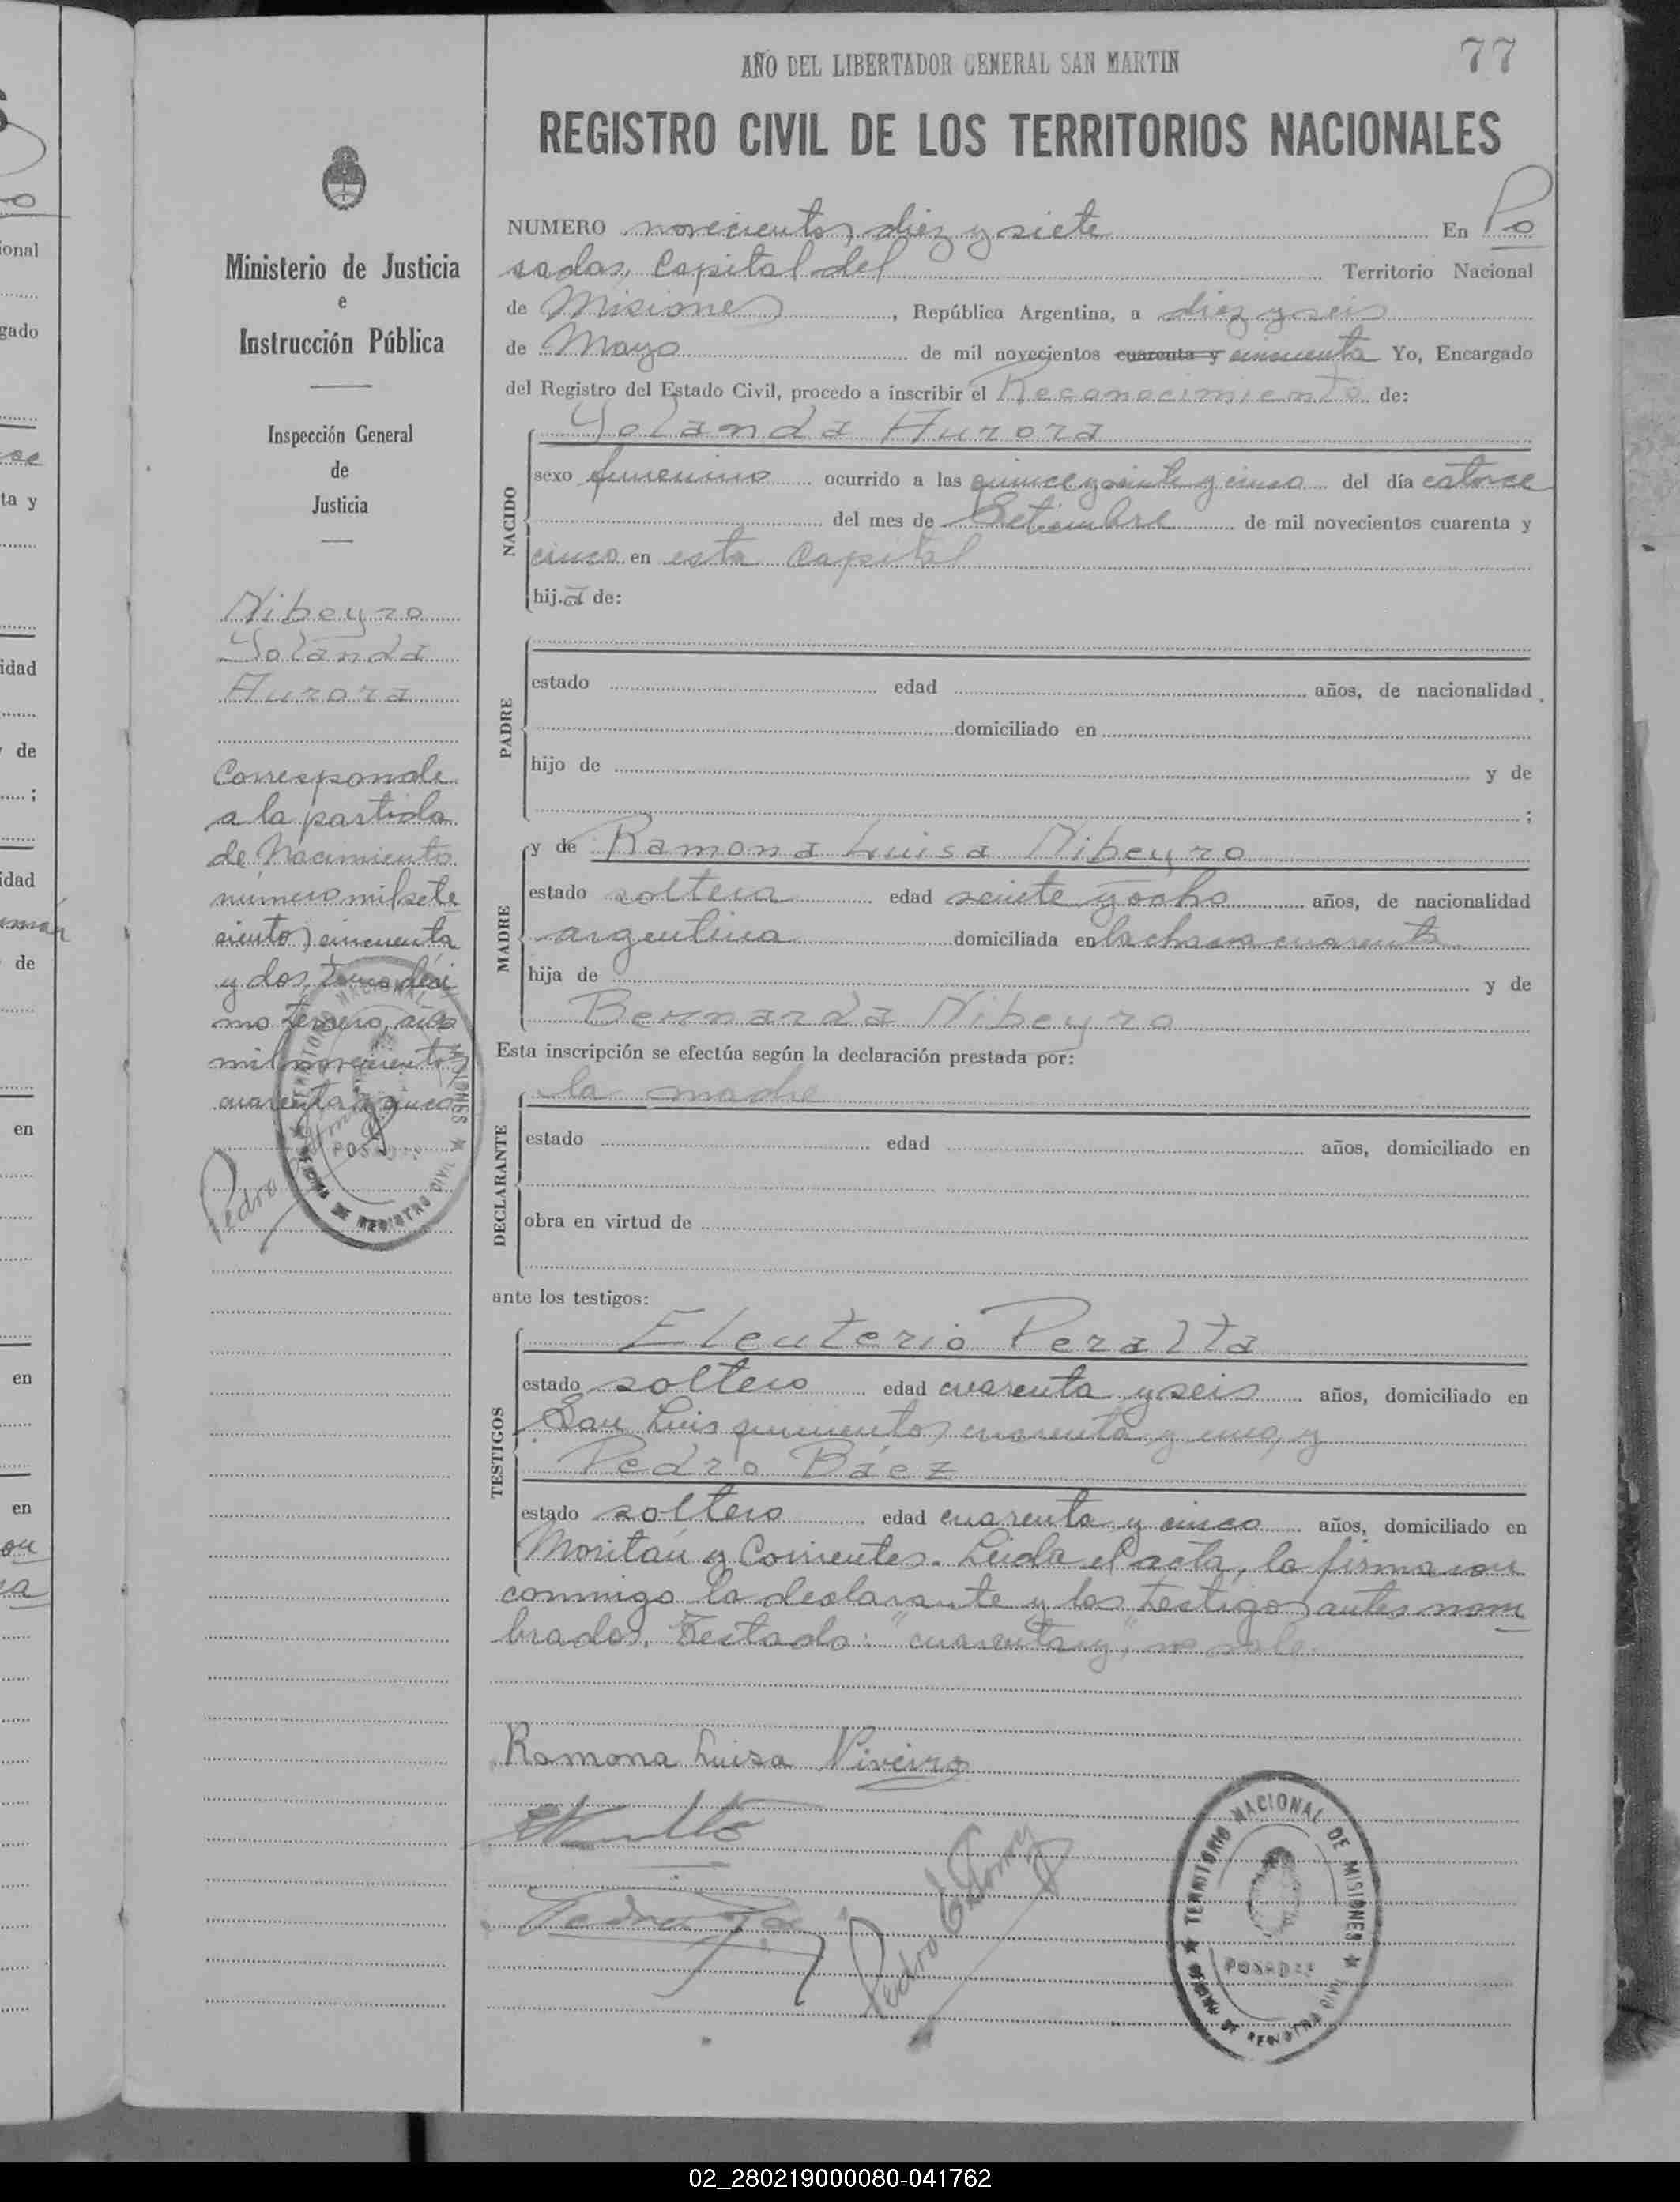 AÑO DEL LIBERTADOR GENERAL SAN MARTIN
77
REGISTRO CIVIL DE LOS TERRITORIOS NACIONALES
Ministerio de Justicia
e
Instrucción Pública
Inspección General
de
Justicia
Nibeyro
Yolanda
Aurora
Corresponde
a la partida
de Nacimiento
número mil sete
ciento) cincuenta
y dos, tomo déci
mo tercero, año
mil novecientos
cuarenta y cinco
NUMERO novecientos diez y siete En Po
sadas, Capital del Territorio Nacional
de Misiones, República Argentina, a diez y seis
de Mayo de mil novecientos cuarenta y cincuenta Yo, Encargado
del Registro del Estado Civil, procedo a inscribir el Reconocimiento de:
Yolanda Aurora
NACIDO
sexo femenino ocurrido a las quince y veinte y cinco del día catorce
del mes de Setiembre de mil novecientos cuarenta y
cinco en esta Capital
hija de:
PADRE
estado edad años, de nacionalidad
domiciliado en
hijo de y de
;
MADRE
y de Ramona Luisa Nibeyro
estado soltera edad veinte y ocho años, de nacionalidad
argentina domiciliada en la chacra cuarenta
hija de y de
Bernarda Nibeyro
Esta inscripción se efectúa según la declaración prestada por:
la madre
DECLARANTE
estado edad años, domiciliado en
obra en virtud de
ante los testigos:
TESTIGOS
Eleuterio Peralta
estado soltero edad cuarenta y seis años, domiciliado en
San Luis quinientos cuarenta y cinco, y
Pedro Báez
estado soltero edad cuarenta y cinco años, domiciliado en
Moritán y Corrientes. Leída el acta, la firma con
conmigo la declarante y los testigos antes nom
brados. Testado: "cuarenta y", no vale.
Ramona Luisa Niveiro
Pedro
TERRITORIO NACIONAL DE MISIONES
POSADAS
OFICINA DE REGISTRO CIVIL
02_280219000080-041762